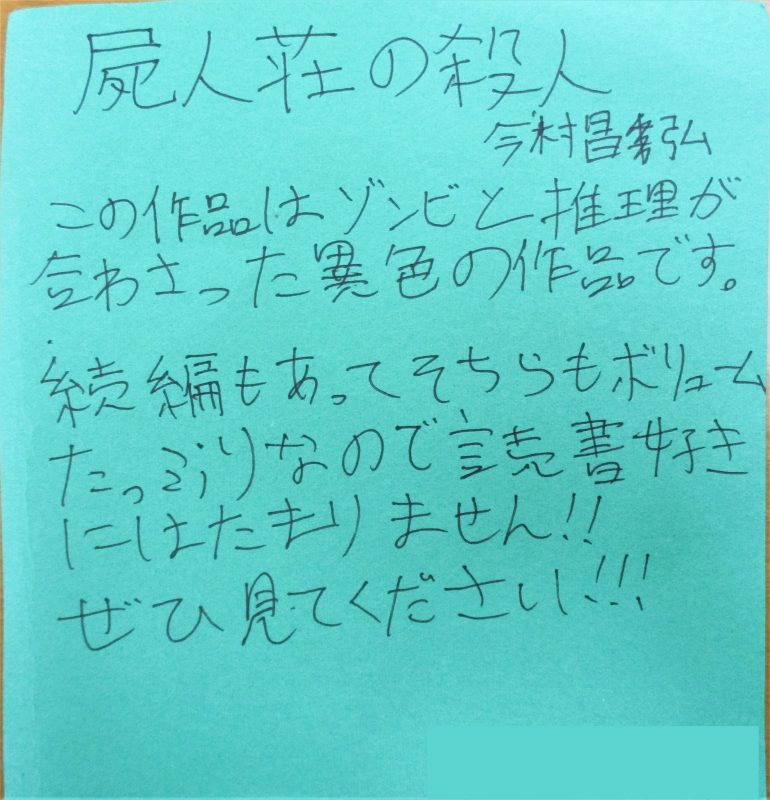 屍人荘の殺人
今村昌弘
この作品はゾンビと推理が
合わさった異色の作品です。
続編もあってそちらもボリューム
たっぷりなので読書好き
にはたまりません!!
ぜひ見てください!!!